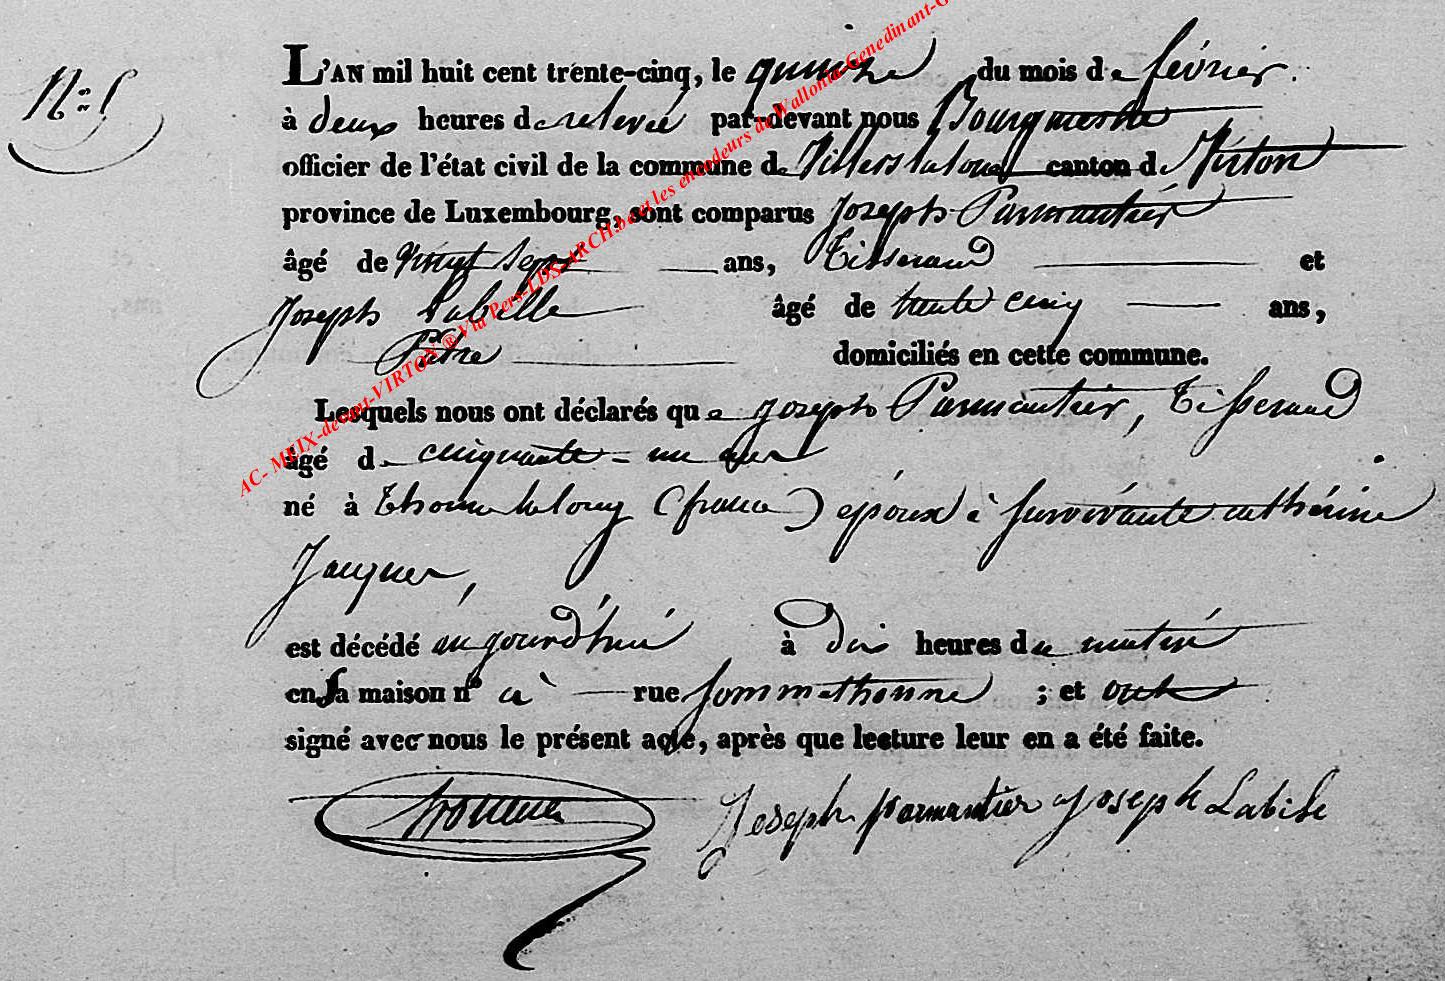 N°: 5
L'AN mil huit cent trente-cinq, le quinze du mois de février.
à deux heures de relevée par-devant nous Bourgmestre
officier de l'état civil de la commune de Villers la loue canton de Virton
province de Luxembourg, sont comparus Joseph Parmantier
âgé de vingt sept ans, Tisserand et
Joseph Labille âgé de trente cinq ans,
domiciliés en cette commune.
Lesquels nous ont déclarés que Joseph Parmentier, Tisserand
âgé de cinquante-un ans
né à Thonne la long (france) époux à survivante cathérine
Jacques,
est décédé aujourd'hui à dix heures du matin
en sa maison n° a rue Sommethonne ; et ont
signé avec nous le présent acte, après que lecture leur en a été faite.
Joseph parmantier Joseph Labile
AC- MEIX-devant-VIRTON ® Via Pers-LDS-ARCH.be et les encodeurs de Wallonia-Genedinant-G